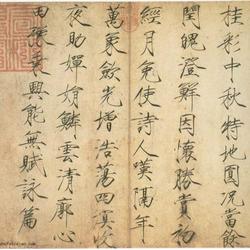 桂彩中秋特地圓况當餘
閏魄澄鮮因懷勝賞初
經月免使詩人嘆隔年
萬象斂光增浩蕩四溟收
夜助嬋娟鱗雲清廓心
田豫乘興能無賦詠篇